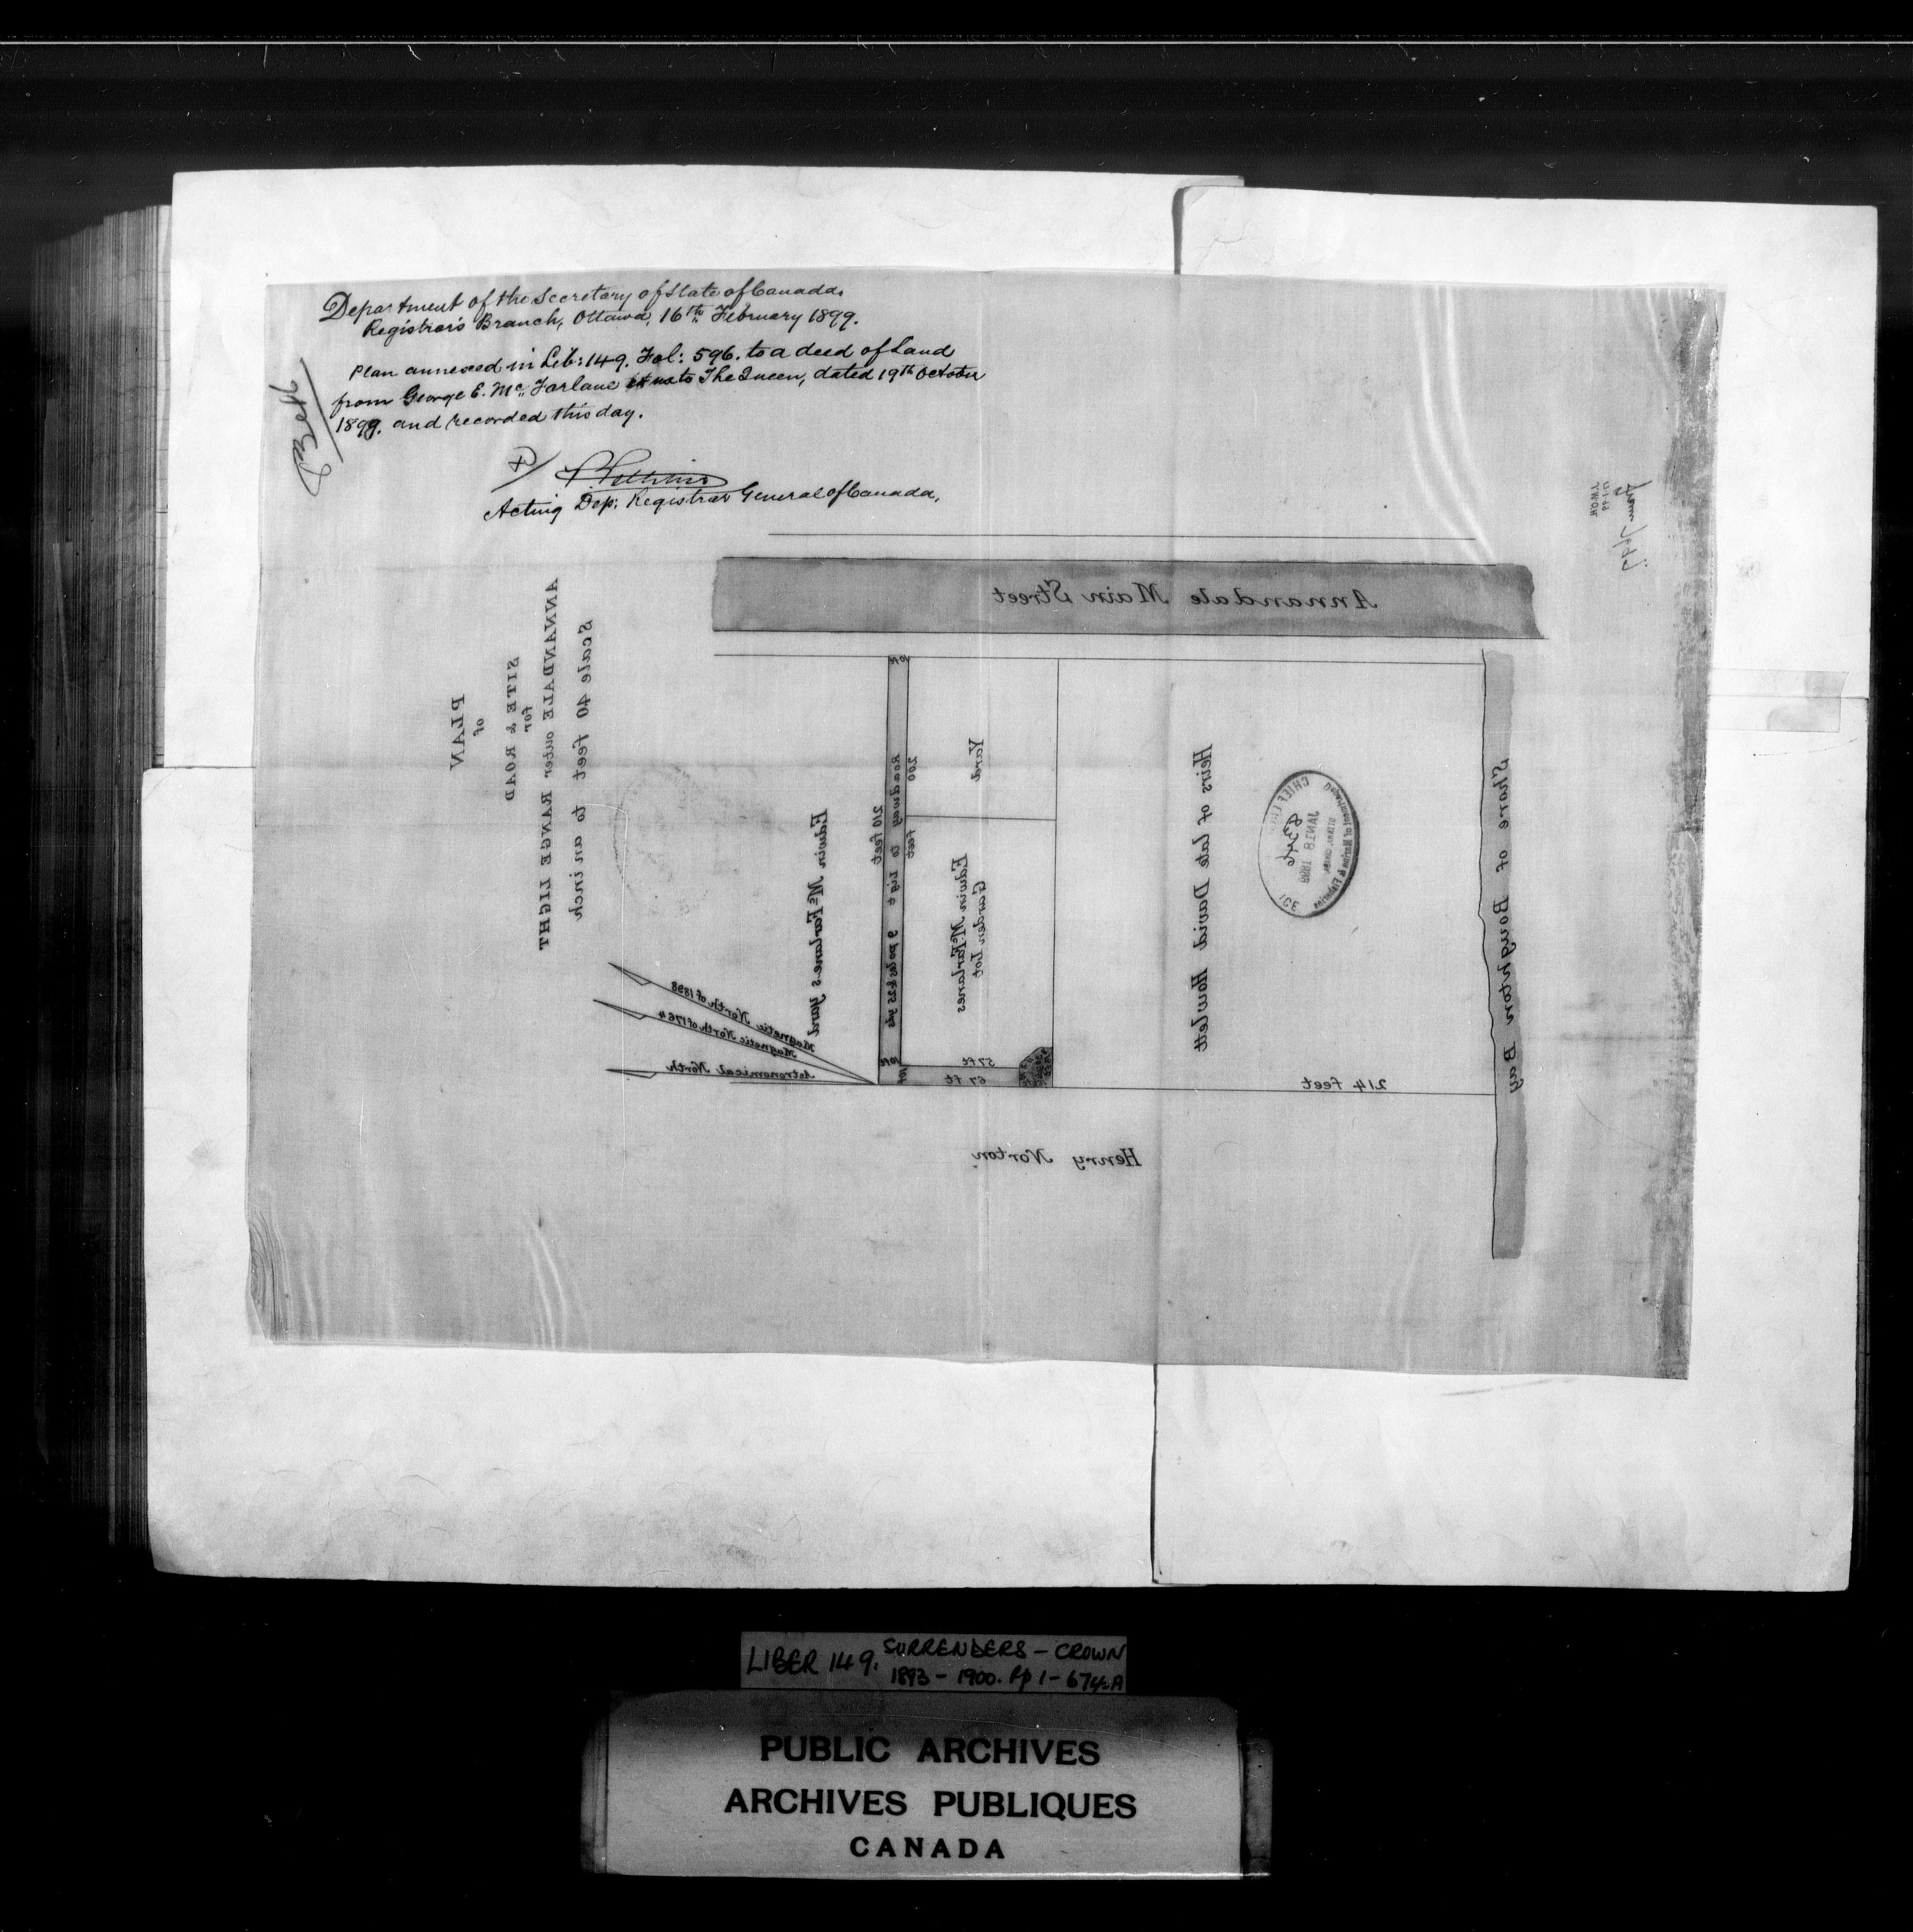 Department of the Secretary of State of Canada.
Registrar's Branch, Ottawa, 16th February 1899.
Plan annexed in Lib: 149. Fol: 596. to a deed of Land
from George E. McFarlane et ux to The Queen, dated 19th October
1899. and recorded this day.
Acting Dep: Registrar General of Canada.
Annandale Main Street
PLAN
of
SITE & ROAD
for
ANNANDALE outer RANGE LIGHT
Scale 40 feet to an inch
10 ft
Yard
200 feet
Roadway to Light 9 poles & 25 yds
210 feet
Edwin McFarlanes Yard
Edwin McFarlanes
Garden Lot
Heirs of late David Howlett
Department of Marine & Fisheries
JAN 18 1899
Shore of Boughton Bay
Magnetic North of 1898
Magnetic North of 1764
Astronomical North
10 ft
10 ft
57 ft
67 ft
214 feet
Henry Norton
LIBER 149. SURRENDERS - CROWN
1893 - 1900. pp 1 - 674-A
PUBLIC ARCHIVES
ARCHIVES PUBLIQUES
CANADA